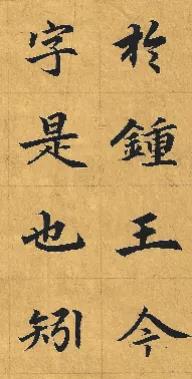 於鍾王今
字是也矧